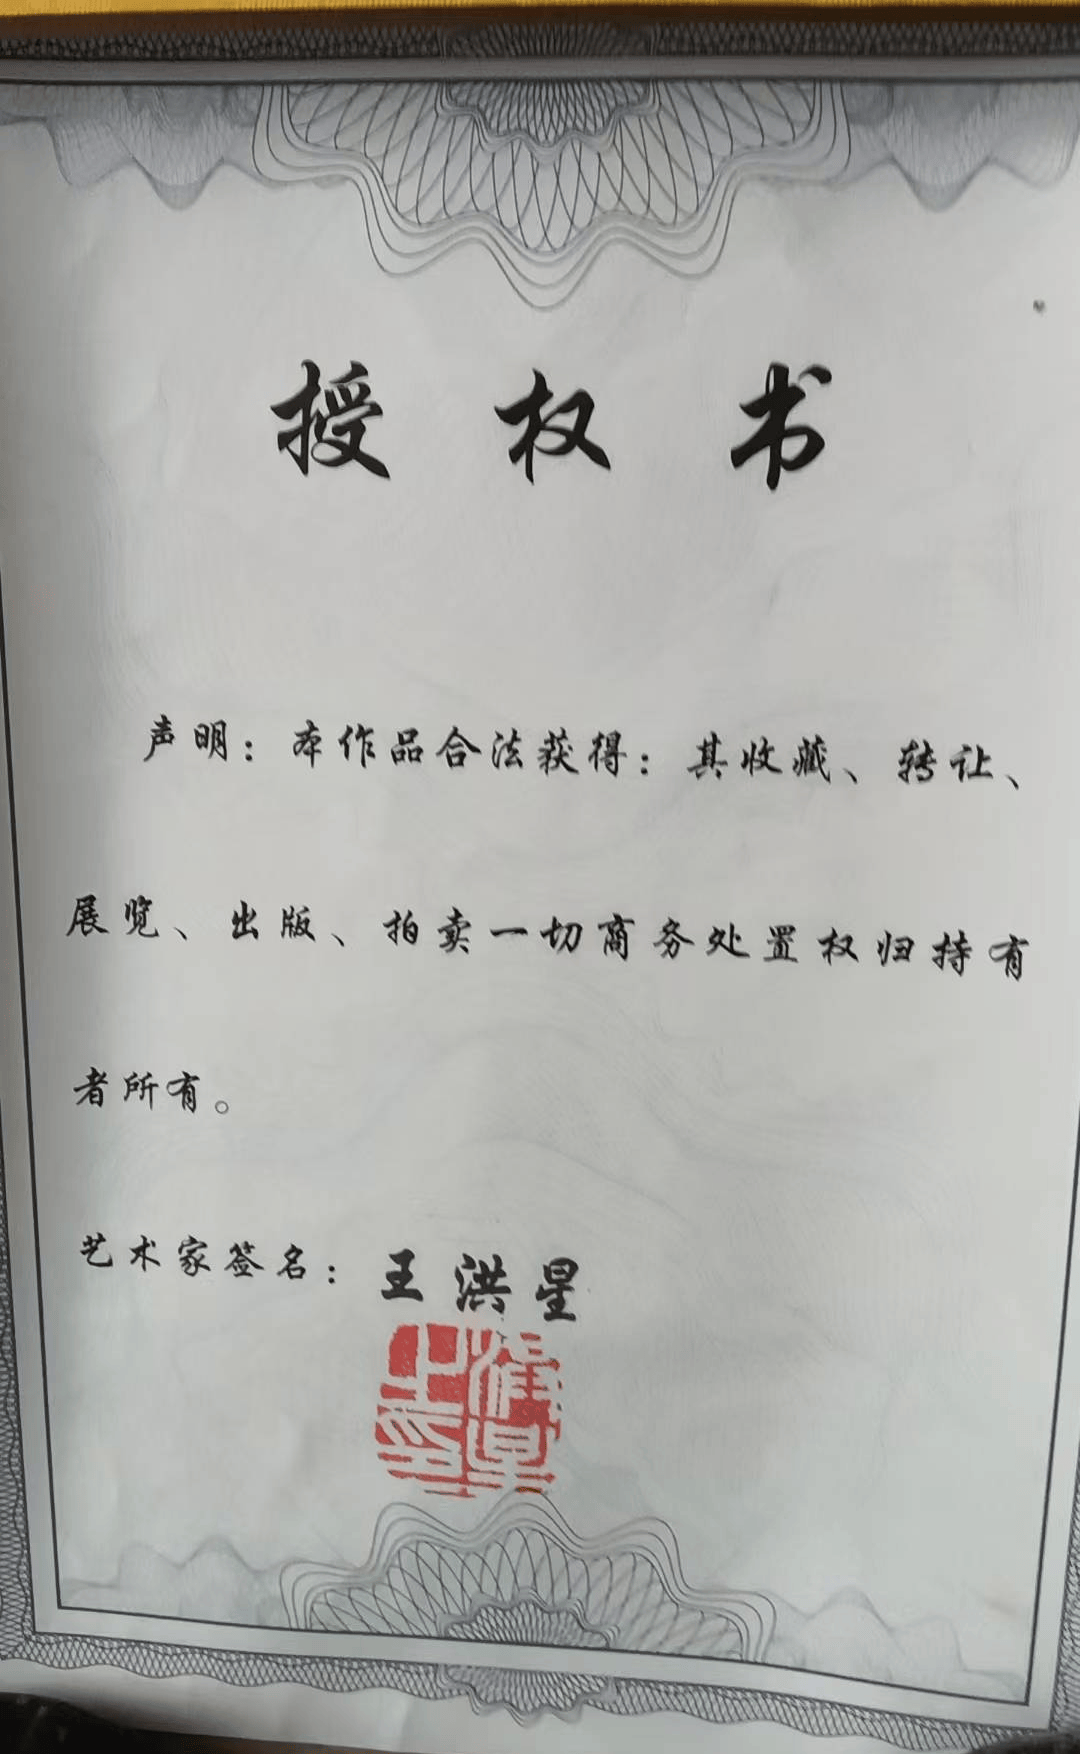 授权书
声明：本作品合法获得：其收藏、转让、
展览、出版、拍卖一切商务处置权归持有
者所有。
艺术家签名：王洪星